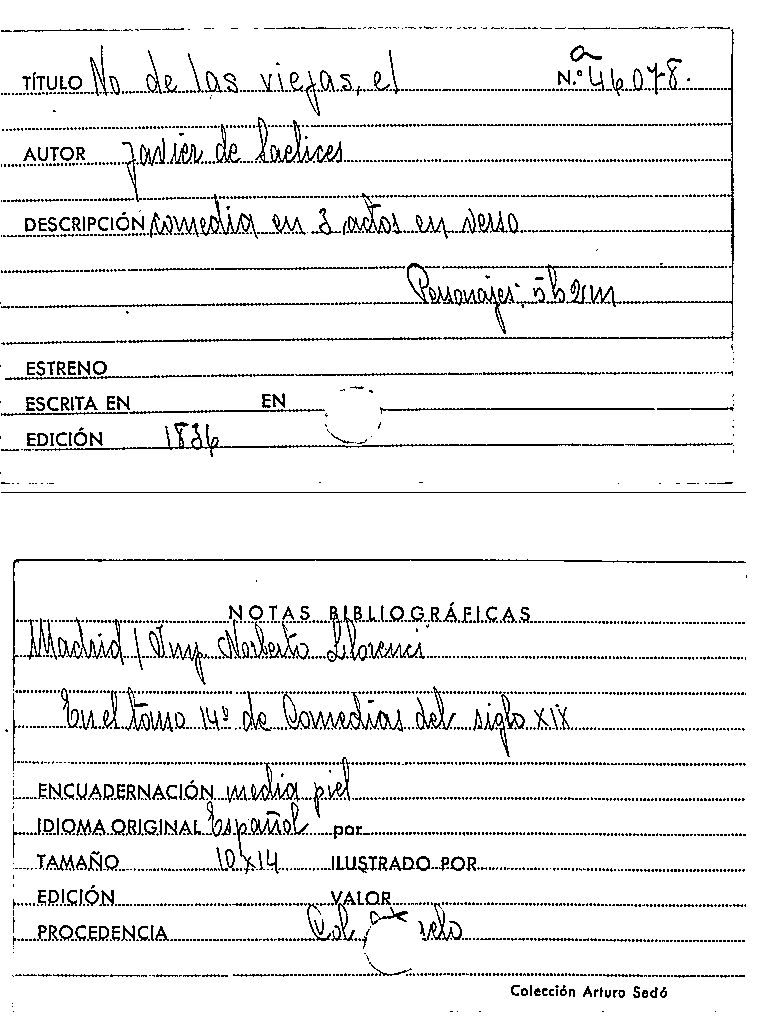 TÍTULO No de las viejas, el N.º 46078.
a
AUTOR Javier de Saelices
DESCRIPCIÓN comedia en 3 actos en verso
Personajes: 5h 2m
ESTRENO
ESCRITA EN EN
EDICIÓN 1836
NOTAS BIBLIOGRÁFICAS
Madrid / Imp. Norberto Llorenci
En el tomo 14º de Comedias del siglo XIX
ENCUADERNACIÓN media piel
IDIOMA ORIGINAL Español por
TAMAÑO 10x14 ILUSTRADO POR
EDICIÓN VALOR
PROCEDENCIA Col.
Colección Arturo Sedó